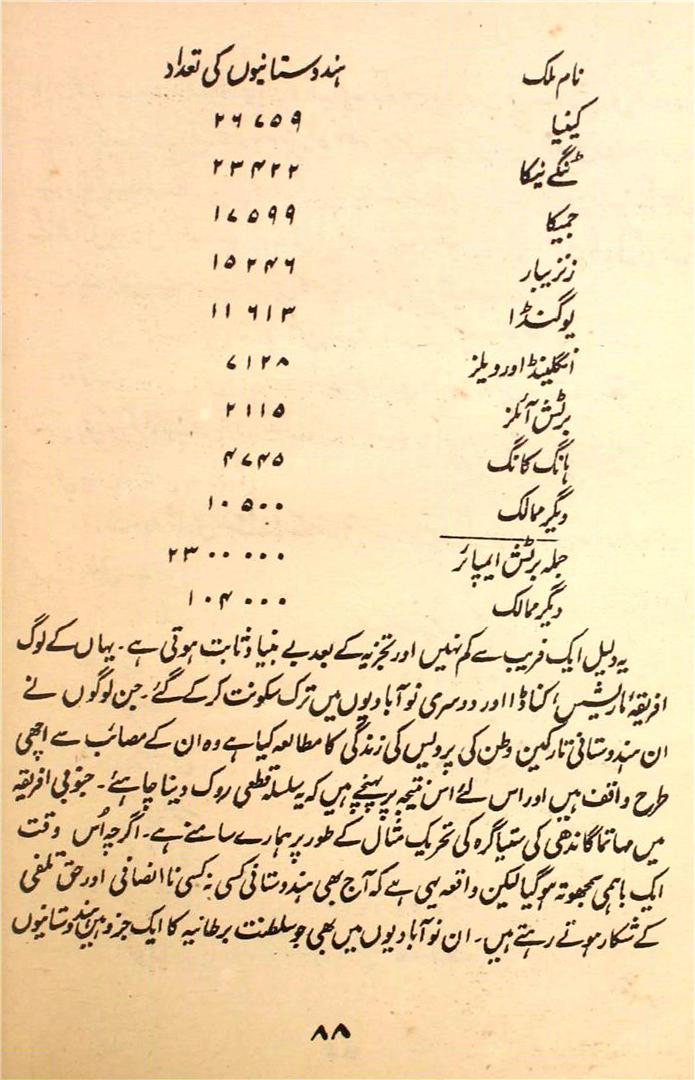 نام ملک ہندوستانیوں کی تعداد
کینیا ۲۶۷۵۹
ٹنگے نیکا ۲۳۴۲۲
جمیکا ۱۷۵۹۹
زنزیبار ۱۵۲۴۶
یوگنڈا ۱۱۶۱۳
انگلینڈ اور ویلز ۷۱۲۸
برٹش آئلز ۲۱۱۵
ہانگ کانگ ۴۷۴۵
دیگر ممالک ۱۰۵۰۰
جملہ برٹش ایمپائر ۲۳۰۰۰۰۰
دیگر ممالک ۱۰۴۰۰۰
یہ دلیل ایک فریب سے کم نہیں اور تجزیہ کے بعد بے بنیاد ثابت ہوتی ہے۔ یہاں کے لوگ
افریقہ، ماریشیس، کناڈا اور دوسری نوآبادیوں میں ترک سکونت کر کے گئے۔ جن لوگوں نے
ان ہندوستانی تارکین وطن کی پردیس کی زندگی کا مطالعہ کیا ہے وہ ان کے مصائب سے اچھی
طرح واقف ہیں اور اس لئے اس نتیجہ پر پہنچے ہیں کہ یہ سلسلہ قطعی روک دینا چاہئے۔ جنوبی افریقہ
میں مہاتما گاندھی کی ستیاگرہ کی تحریک مثال کے طور پر ہمارے سامنے ہے۔ اگرچہ اُس وقت
ایک باہمی سمجھوتہ ہو گیا لیکن واقعہ یہی ہے کہ آج بھی ہندوستانی کسی نہ کسی ناانصافی اور حق تلفی
کے شکار ہوتے رہتے ہیں۔ ان نوآبادیوں میں بھی جو سلطنت برطانیہ کا ایک جزو ہیں ہندوستانیوں
۸۸